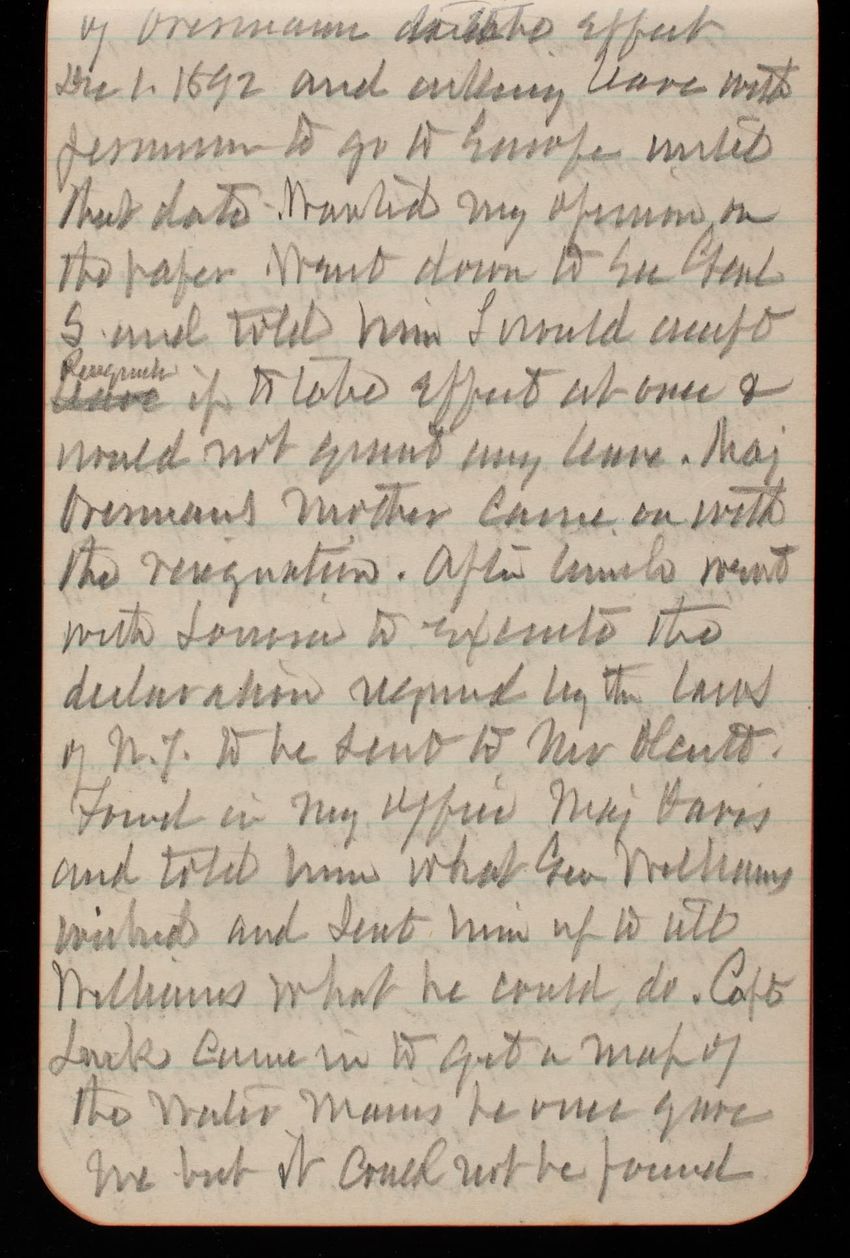 of Overmann to take Effect
Dec 1. 1892 and asking leave with
permission to go to Europe until
that date. Wanted my opinion on
the paper. Went down to see Genl
S. and told him I would accept
Resignatn
leave if to take Effect at once &
would not grant any leave. Maj
Overmans Mother came on with
the resignation. After lunch went
with to Execute the
declaration required by the laws
of N.J. to be sent to Mr Olcutt.
Found in my office Maj Davis
and told him what Geo Williams
wished and sent him up to tell
Williams what he could do. Capt
came in to get a map of
the Water Mains he once gave
me but it could not be found